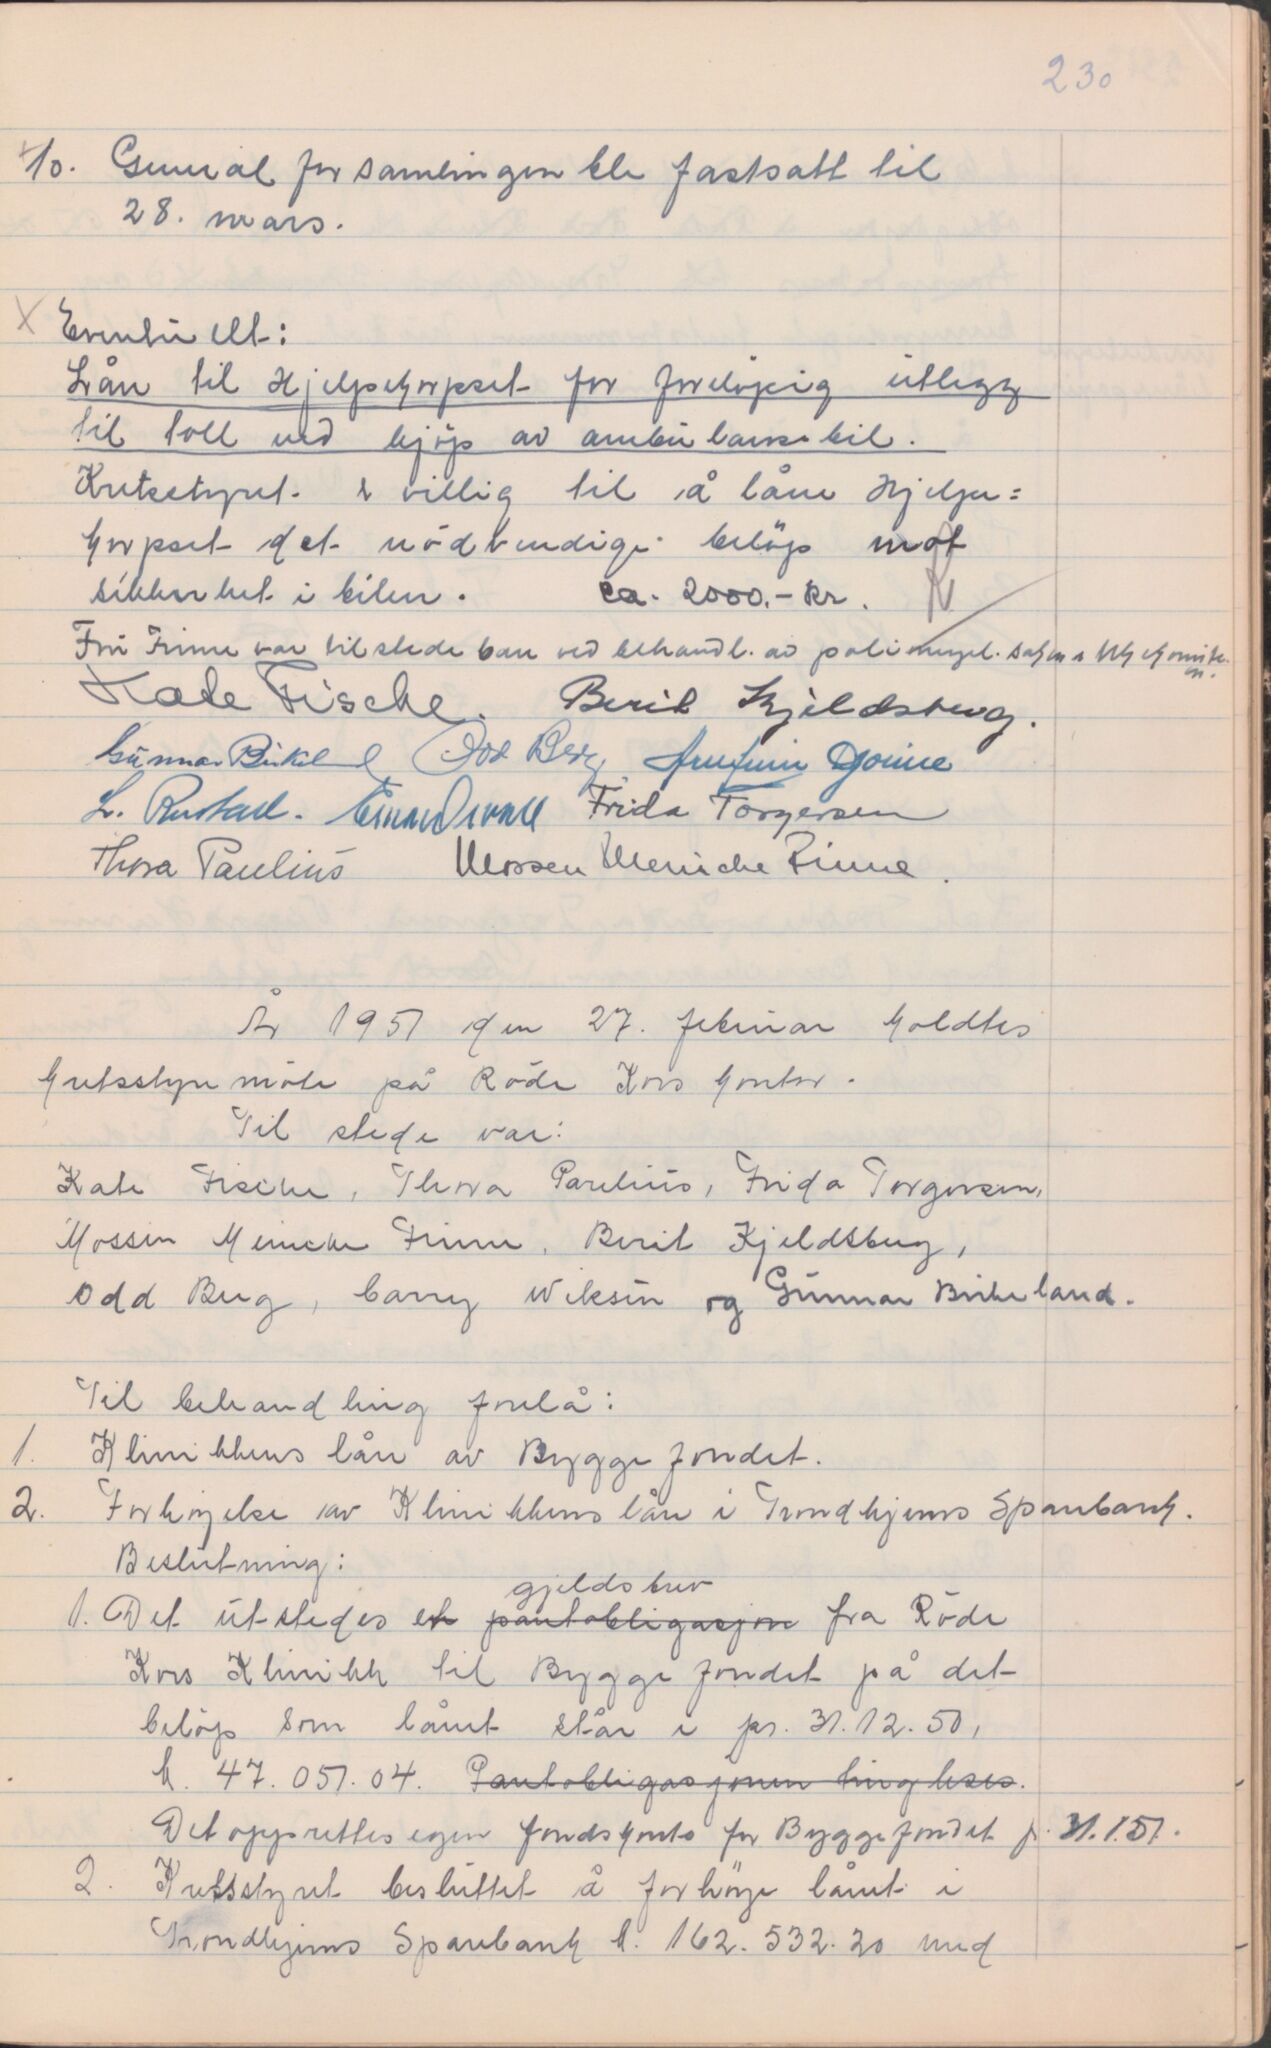 230
10. Generalforsamlingen ble fastsatt til
28. mars.
X Eventuelt:
Lån til Hjelpekorpset for foreløpig utlegg
til toll ved kjøp av ambulansebil.
Kretsstyret er villig til å låne Hjelpe=
korpset det nödvendige beløp mot
sikkerhet i bilen. ca. 2000.- kr.
Fru Finne var tilstede bare ved behandl. av
Kate Fische. Berit Kjeldsberg.
Gunnar Birkeland Odd Berg
L. Rustad. Frida Torgersen
Thora Paulius Mossen Meinche Finne.
År 1951 den 27. februar holdtes
kretsstyremöte på Röde Kors kontor.
Til stede var:
Kate Fische, Thora Paulius, Frida Torgersen,
Mossen Meincke Finne, Berit Kjeldsberg,
Odd Berg, Carry Wiksin og Gunnar Birkeland.
Til behandling forelå:
1. Klinikkens lån av Byggefondet.
2. Forhøyelse av Klinikkens lån i Trondhjems Sparebank.
Beslutning:
gjeldsbrev
1. Det utstedes et pantobligasjon fra Röde
Kors Klinikk til Byggefondet på det
beløp som lånet står i pr. 31.12.50,
kr. 47.051.04. Pantobligasjonen tingleses.
Det opprettes egen fondskonto for Byggefondet p. 31.1.51.
2. Kretsstyret besluttet å forhöye lånet i
Trondhjems Sparebank kr. 162.532.20 med